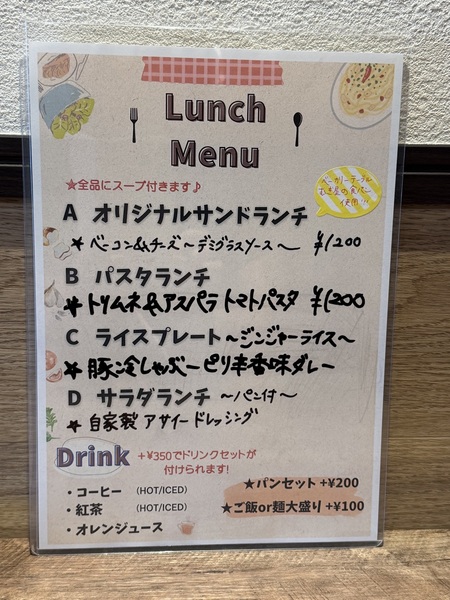 Lunch
Menu
★全品にスープ付きます♪
ベーカリーテーブル
むぎ星の食パン
使用!!!
A オリジナルサンドランチ
★ ベーコン&チーズ〜デミグラスソース〜 ¥1200
B パスタランチ
★ トリムネ&アスパラトマトパスタ ¥1200
C ライスプレート〜ジンジャーライス〜
★ 豚冷しゃぶーピリ辛香味ダレー
D サラダランチ 〜パン付〜
★ 自家製 アサイードレッシング
Drink +¥350でドリンクセットが
付けられます!
・コーヒー (HOT/ICED)
・紅茶 (HOT/ICED)
・オレンジュース
★パンセット +¥200
★ご飯or麺大盛り +¥100